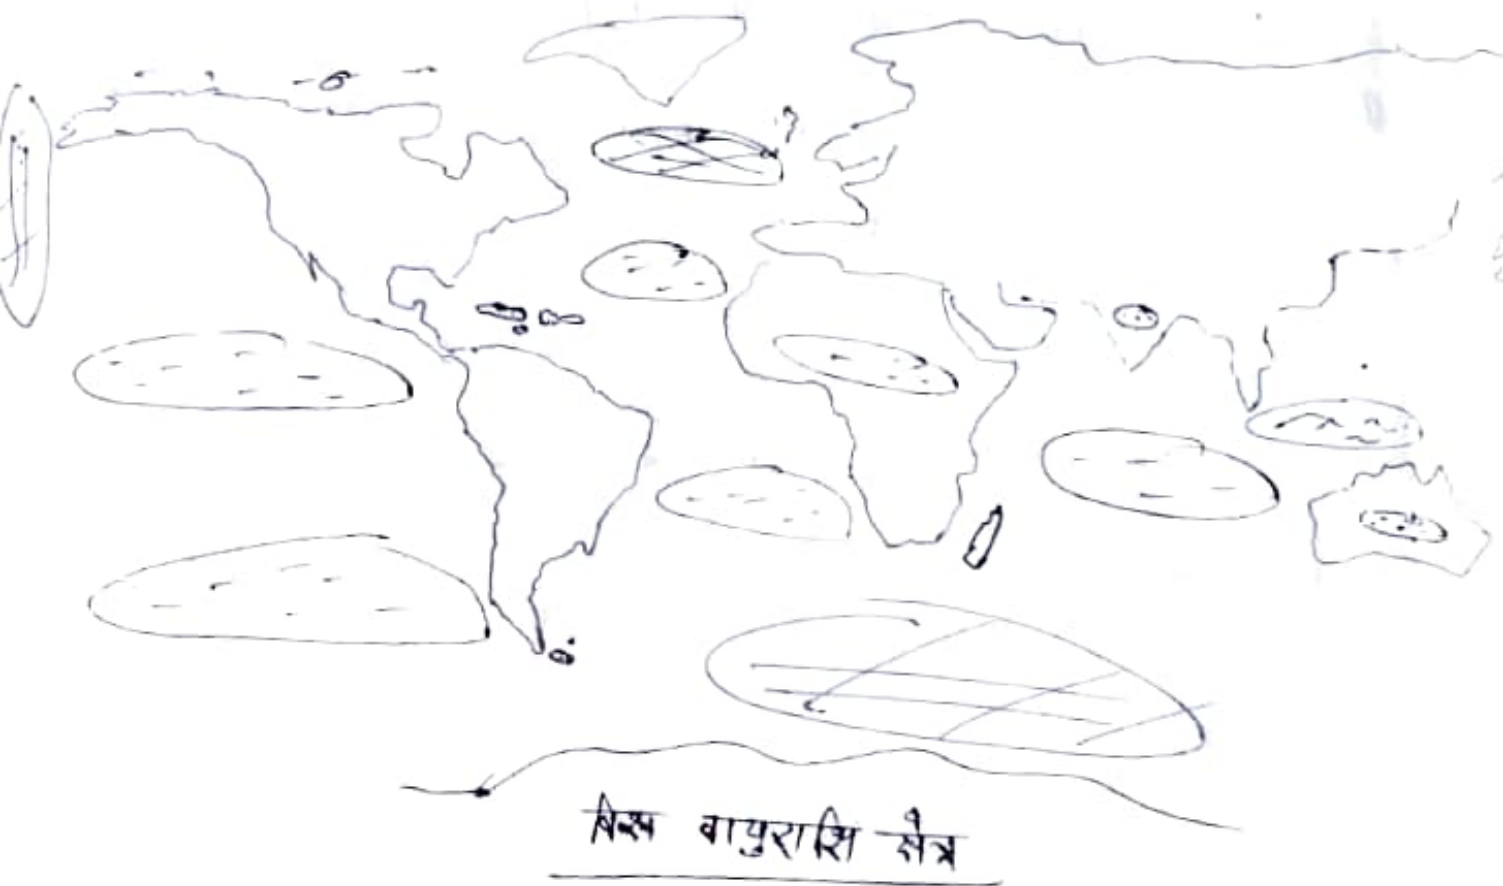 विश्व वायुराशि क्षेत्र